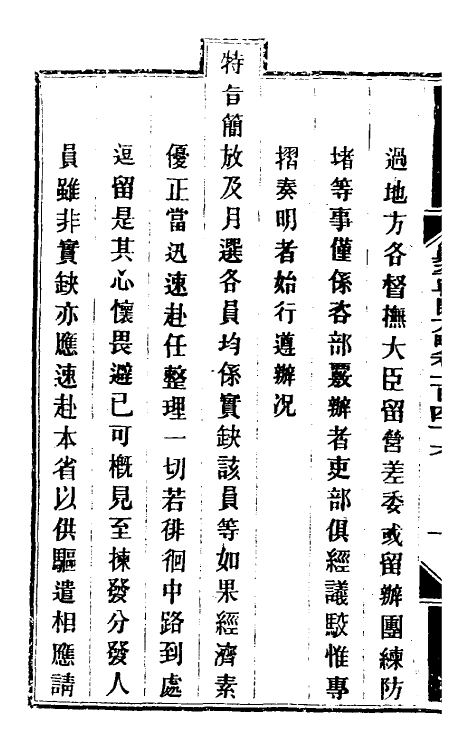 過地方各督撫大臣留營差委或留辦團練防
堵等事僅係咨部覈辦者吏部俱經議駮惟專
摺奏明者始行遵辦况
特旨簡放及月選各員均係實缺該員等如果經濟素
優正當迅速赴任整理一切若徘徊中路到處
逗留是其心懷畏避已可槪見至揀發分發人
員雖非實缺亦應速赴本省以供驅遣相應請